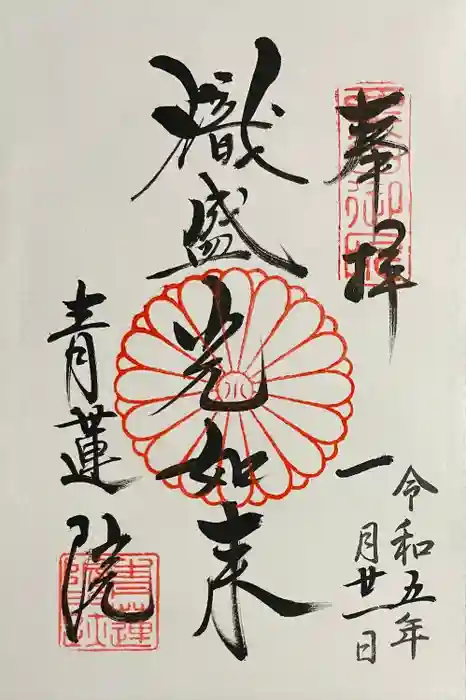 奉拝
令和五年
一月廿一日
熾盛光如来
青蓮院